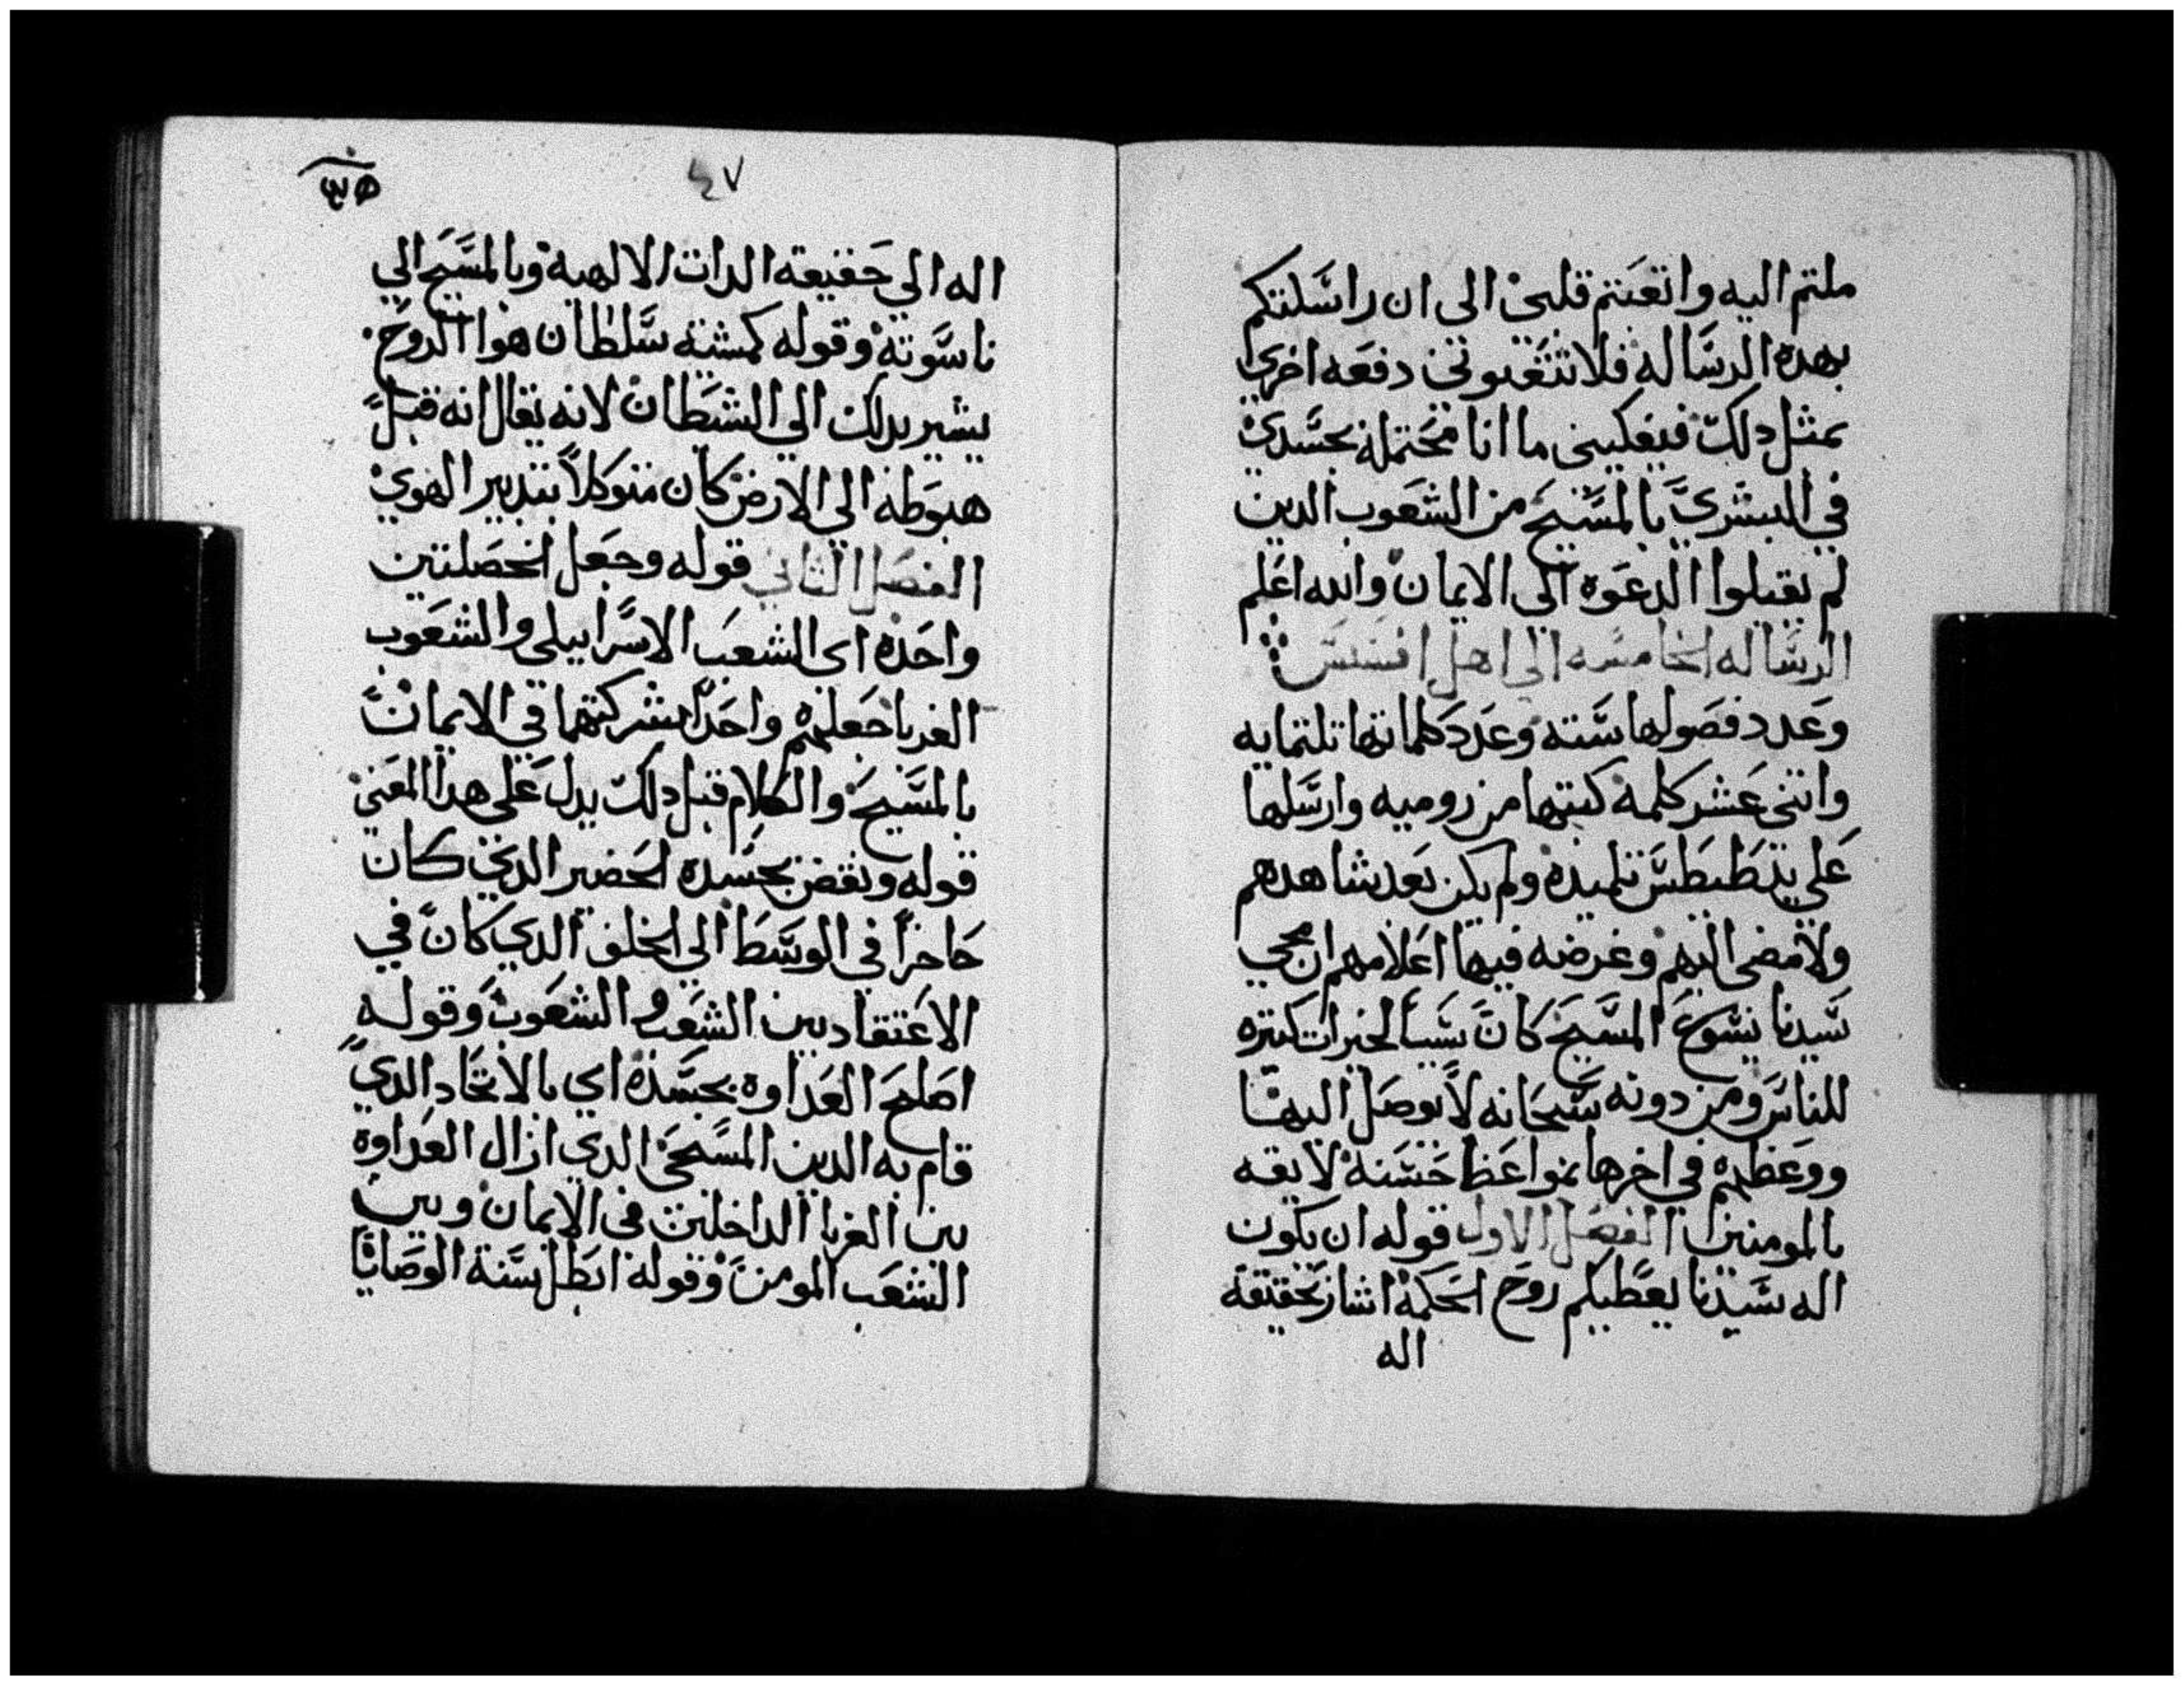 ملتم اليه واتعبتم قلبي الى ان راسلتكم
بهده الرساله فلا تتعبوني دفعه اخري
بمثل دلك فيكفيني ما انا محتمله بجسدي
في البشري بالمسيح من الشعوب الدين
لم يقبلوا الدعوه الى الايمان والله اعلم
الرساله الخامسه الي اهل افسس
وعدد فصولها سته وعدد كلماتها تلتمايه
واتني عشر كلمة كتبها من روميه وارسلها
علي يد طيطس تلميده ولم يكن بعد شاهدهم
ولا مضى اليهم وغرضه فيها اعلامهم ان مجي
سيدنا يسوع المسيح كان سببا لخيرات كتيره
للناس ومن دونه سبحانه لا يوصل اليها
ووعظهم في اخرها بمواعظ حسنة لايقه
بالمومنين الفصل الاول قوله ان يكون
اله سيدنا يعطيكم روح الحكمة اشار بحقيقة
اله
٤٧
اله الي حقيقة الدات الالهية وبالمسيح الي
ناسوته وقوله كمشية سلطان هوا الروح
يشير بدلك الي الشيطان لانه يقال انه قبل
هبوطه الي الارض كان متوكلا بتدبير الهوي
الفصل الثاني قوله وجعل الخصلتين
واحده اى الشعب الاسراييلي والشعوب
الغربا جعلهم واحدا بشركتهما في الايمان
بالمسيح والكلام قبل دلك يدل على هدا المعني
قوله ونقض بجسده الحضير الدي كان
حاجزا في الوسط الي الخلف الدي كان في
الاعتقاد بين الشعب والشعوب وقوله
اصلح العداوة بجسده اي بالاتحاد الدي
قام به الدين المسيحي الدي ازال العداوة
بين الغربا الداخلين فى الايمان وبين
الشعب المومن وقوله ابطل سنة الوصايا